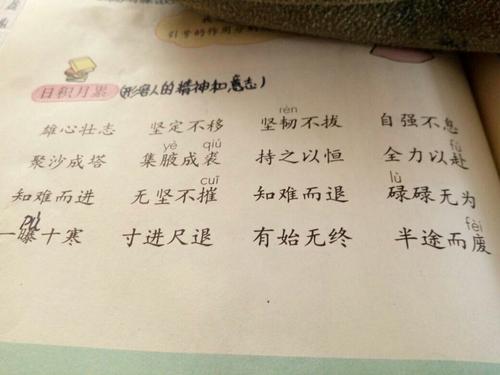 引号的作用
日积月累 (形容人的精神和意志)
rèn
雄心壮志 坚定不移 坚韧不拔 自强不息
yè qiú fù
聚沙成塔 集腋成裘 持之以恒 全力以赴
cuī lù
知难而进 无坚不摧 知难而退 碌碌无为
pù fèi
一曝十寒 寸进尺退 有始无终 半途而废